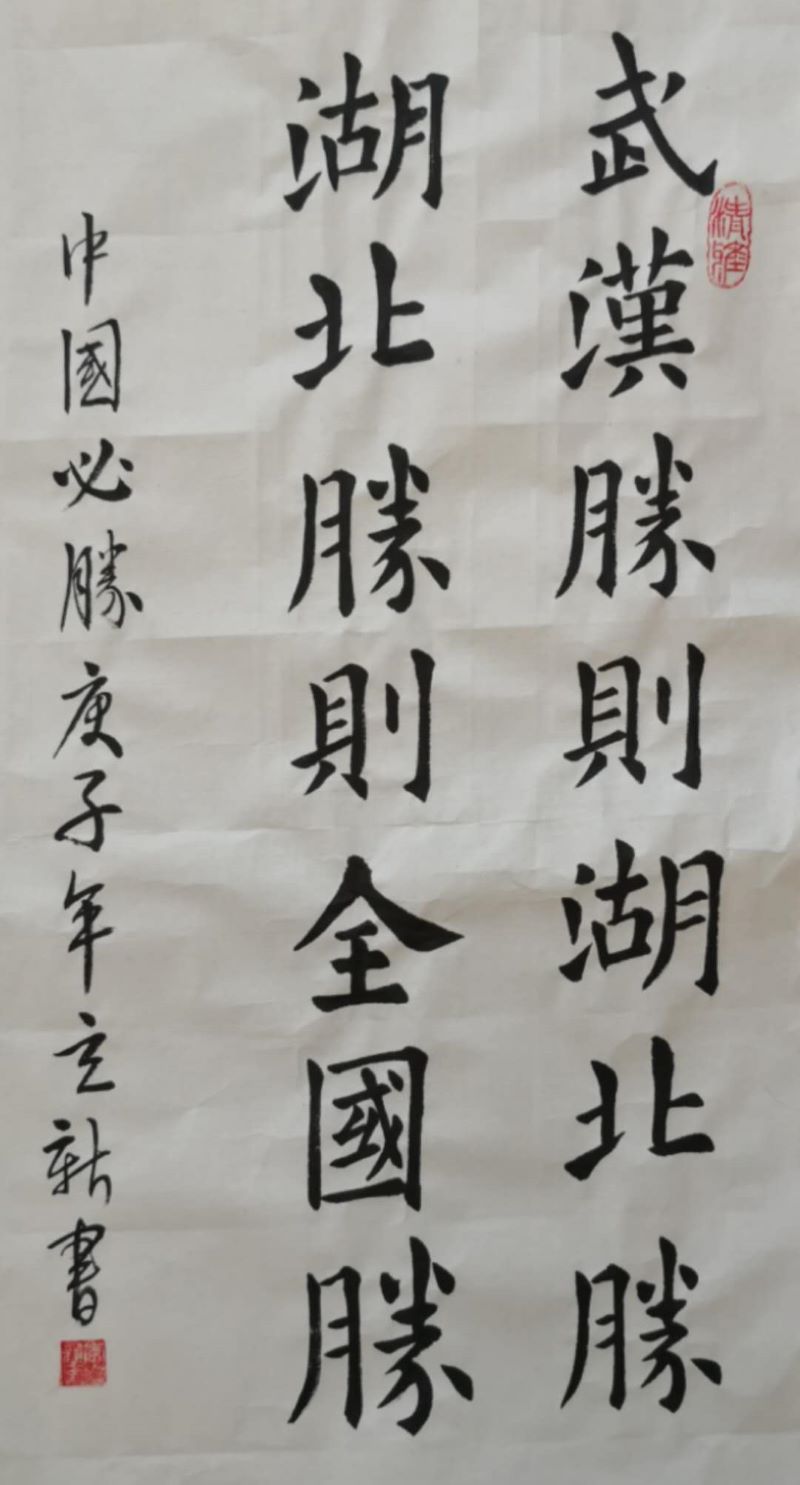 武漢勝則湖北勝
湖北勝則全國勝
中國必勝庚子年立新書
清雅